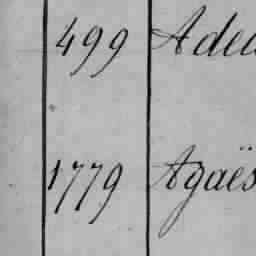 499 Aded
1779 Agaës